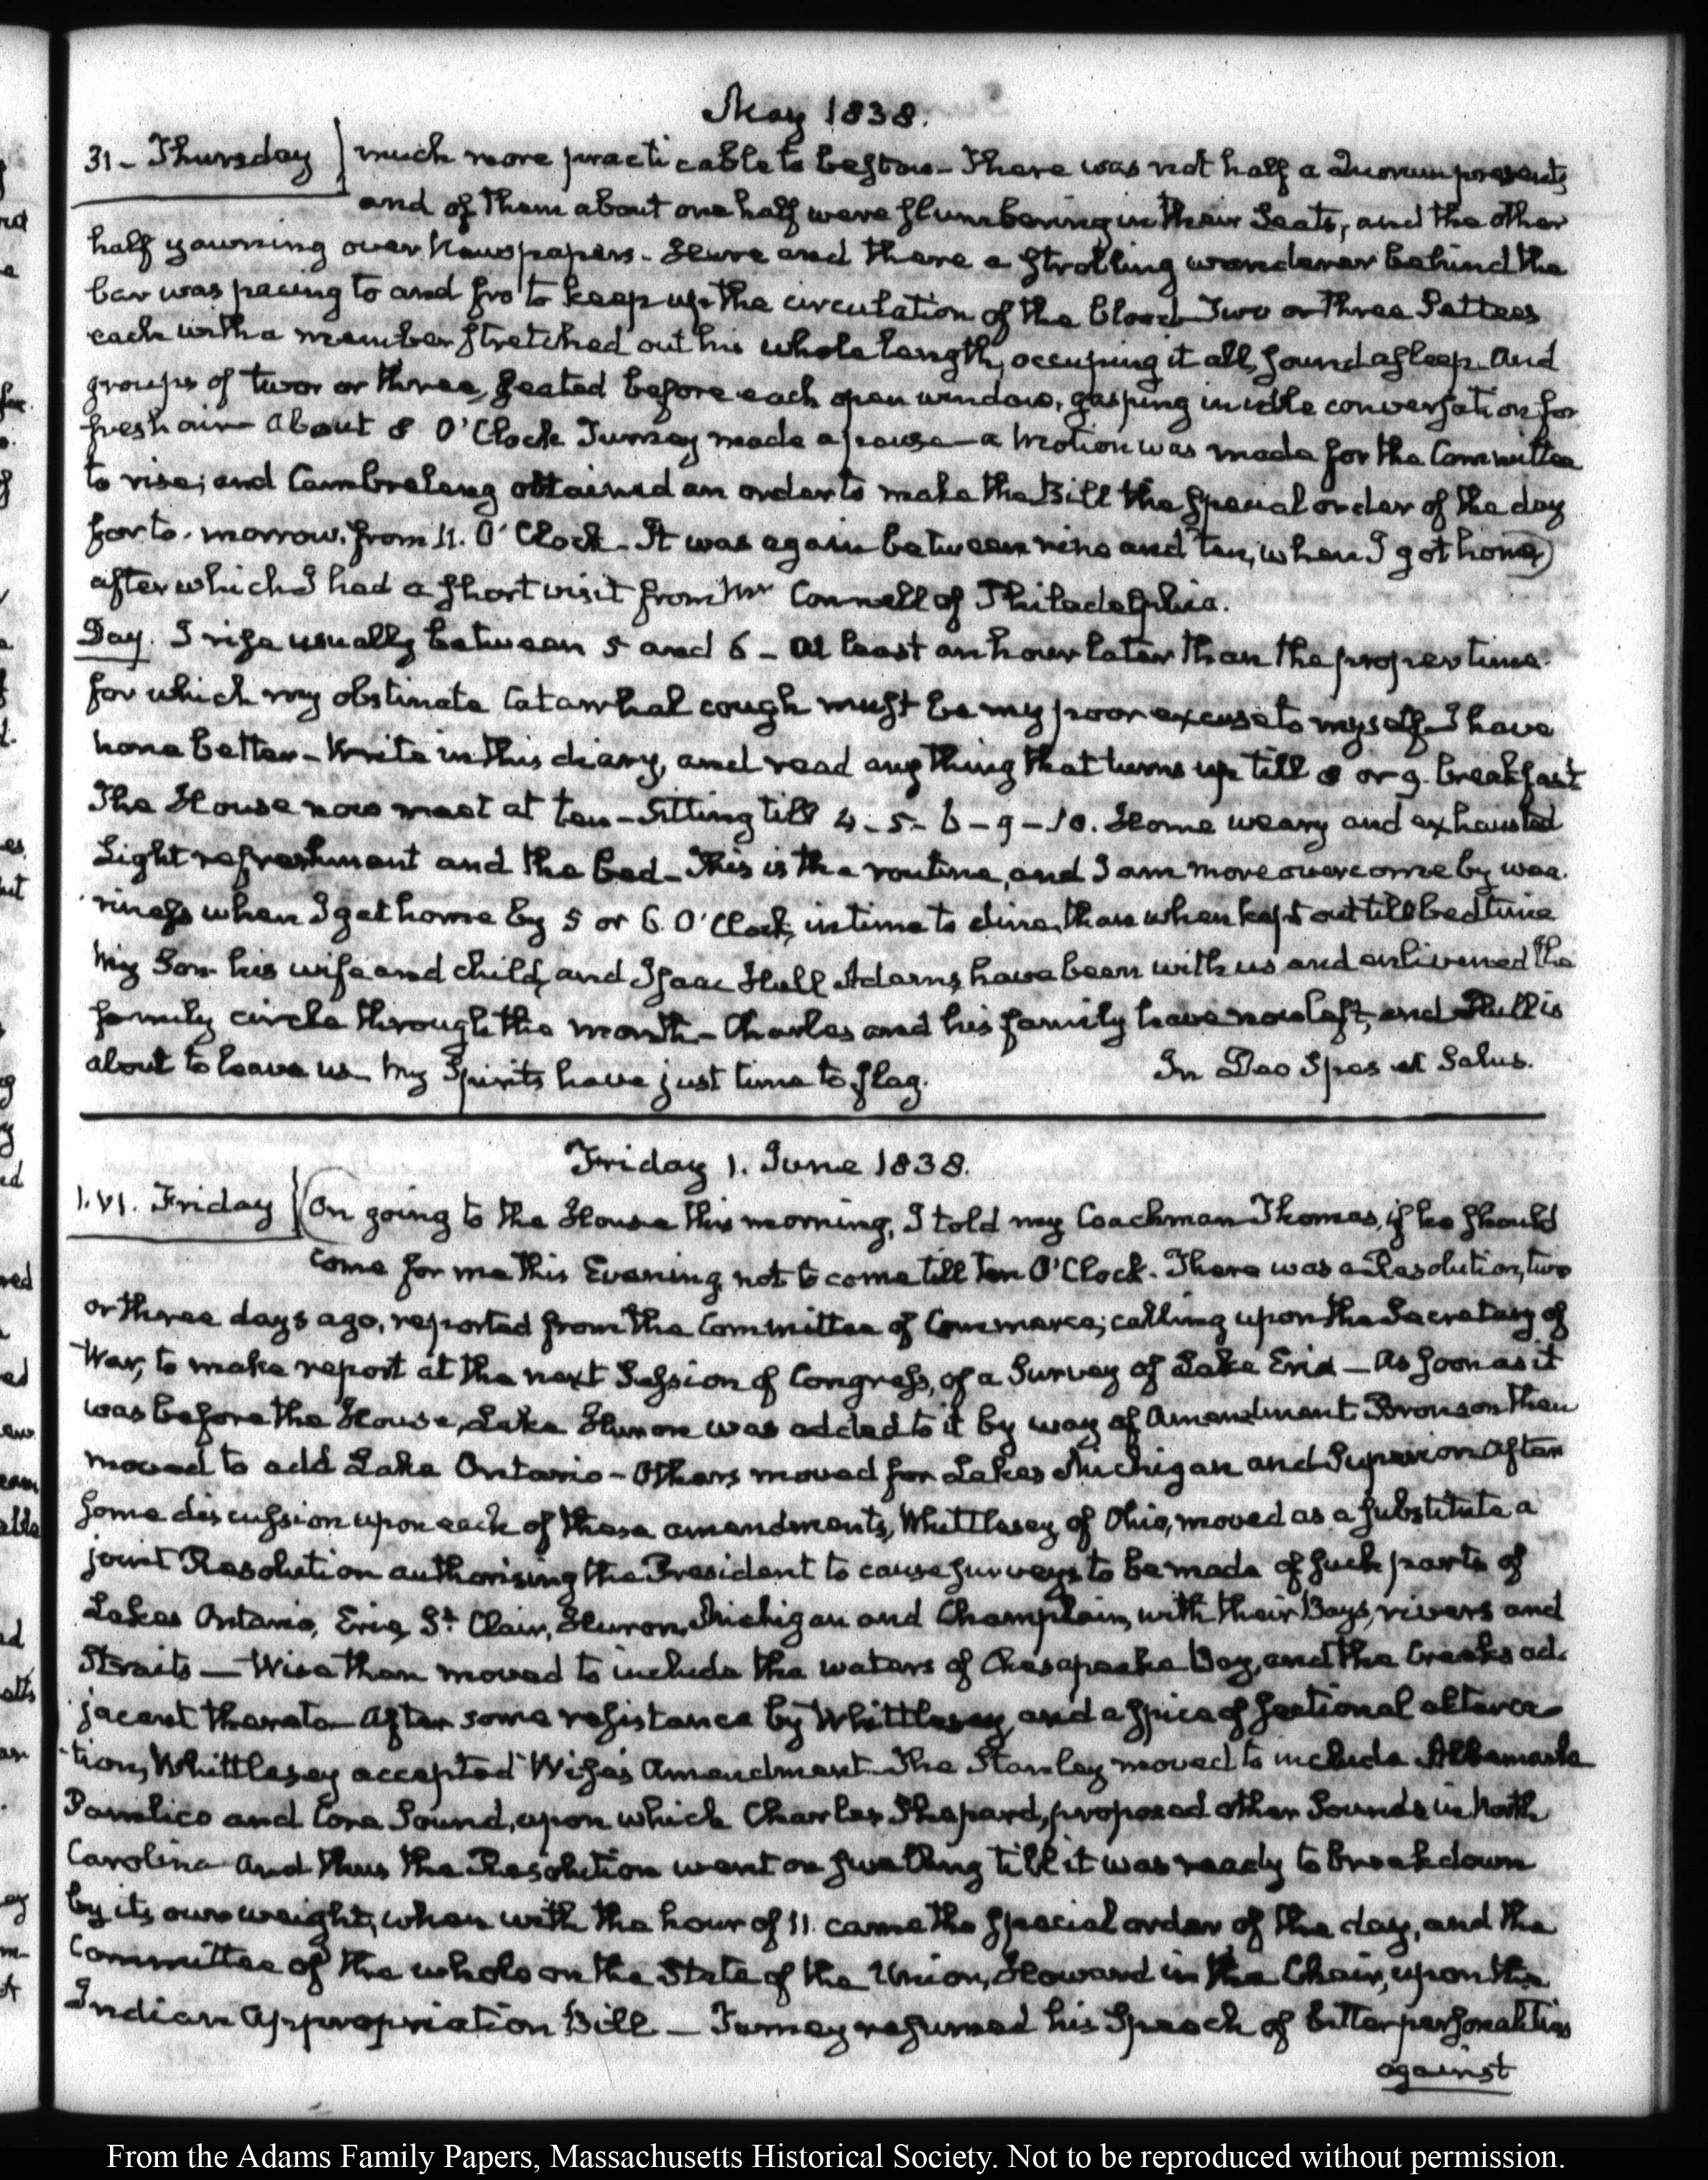 May 1838.
31 - Thursday } much more practicable to bestow - There was not half a Quorum present
and of them about one half were slumbering in their Seats, and the other
half yawning over Newspapers - Here and there a strolling wanderer behind the
bar was pacing to and fro to keep up the circulation of the blood Two or three Settees
each with a member stretched out his whole length, occuping it all, sound asleep. And
groups of two or three, seated before each open window, gasping in idle conversation for
fresh air - About 8 O'Clock Turney made a pause - a motion was made for the Committee
to rise; and Cambreleng obtained an order to make the Bill the special order of the day
for to-morrow, from 11. O'Clock - It was again between nine and ten, when I got home)
after which I had a short visit from Mr Connell of Philadelphia.
Day. I rise usually between 5 and 6 - At least an hour later than the proper time
for which my obstinate Catarrhal cough must be my poor excuse to myself - I have
none better - Write in this diary, and read any thing that turns up till 8 or 9. breakfast
The House now meet at ten - Sitting till 4 - 5 - 6 - 9 - 10. Home weary and exhausted
Light refreshment and the bed - This is the routine, and I am more overcome by wea-
riness when I get home by 5 or 6. O'Clock, in time to dine, than when kept out till bedtime
My Son his wife and child, and Isaac Hull Adams, have been with us and enlivened the
family circle through the month - Charles and his family have now left, and Hull is
about to leave us - My Spirits have just time to flag. In Deo Spes et Salus.
Friday 1. June 1838.
1. VI. Friday { (On going to the House this morning, I told my Coachman Thomas, if he should
come for me this Evening, not to come till Ten O'Clock. There was a Resolution, two
or three days ago, reported from the Committee of Commerce; calling upon the Secretary of
War, to make report at the next Session of Congress, of a Survey of Lake Erie - As soon as it
was before the House, Lake Huron was added to it by way of Amendment. Bronson then
moved to add Lake Ontario - Others moved for Lakes Michigan and Superior After
some discussion upon each of these amendments, Whittlesey of Ohio, moved as a substitute a
joint Resolution authorising the President to cause surveys to be made of such parts of
Lakes Ontario, Erie, St Clair, Huron, Michigan and Champlain, with their Bays, rivers and
Straits - Wise then moved to include the waters of Chesapeake Bay, and the Creeks ad-
jacent thereto - After some resistance by Whittlesey, and a spice of sectional alterca-
tion, Whittlesey accepted Wise's Amendment - The Stanley moved to include Albemarle
Pamlico and Core Sound, upon which Charles Shepard, proposed other Sounds in North
Carolina And thus the Resolution went on swelling till it was ready to break down
by its own weight, when with the hour of 11. came the special order of the day, and the
Committee of the whole on the State of the Union, Howard in the Chair, upon the
Indian Appropriation Bill - Turney resumed his Speech of bitter personalities
against
From the Adams Family Papers, Massachusetts Historical Society. Not to be reproduced without permission.